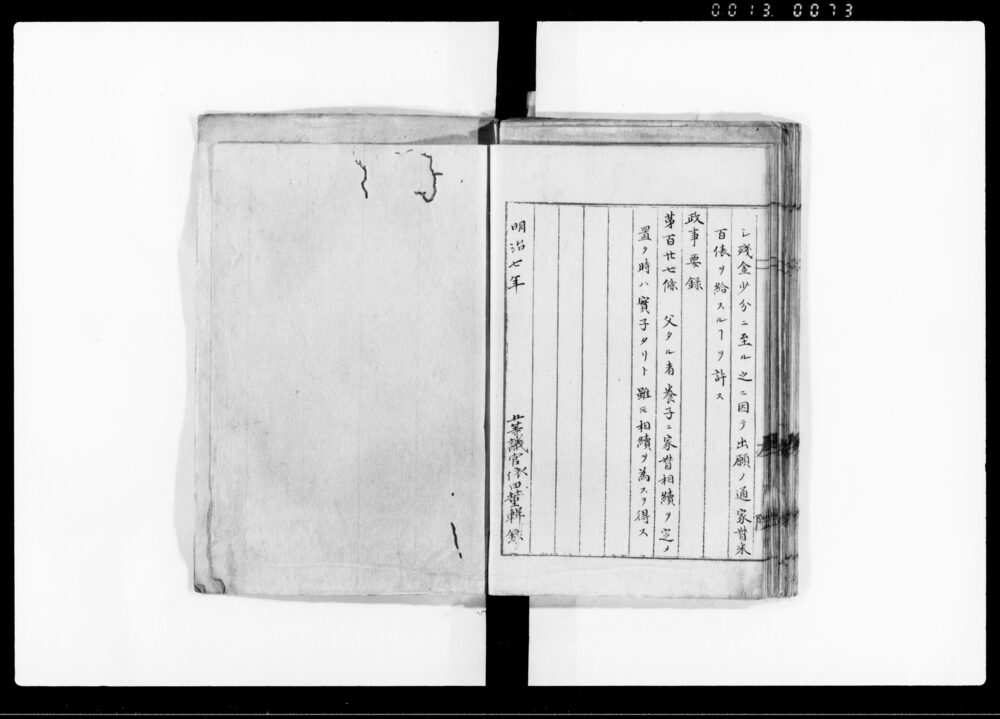 0013 0073
シ残金少分ニ至ル之ニ因テ出願ノ通家督米
百俵ヲ給スルヿヲ許ス
政事要録
第百廿七條　父タル者養子ニ家督相續ヲ定メ
置ク時ハ實子タリト雖𪜈相續ヲ為スヲ得ス
明治七年
廿等議官依田薫輯錄